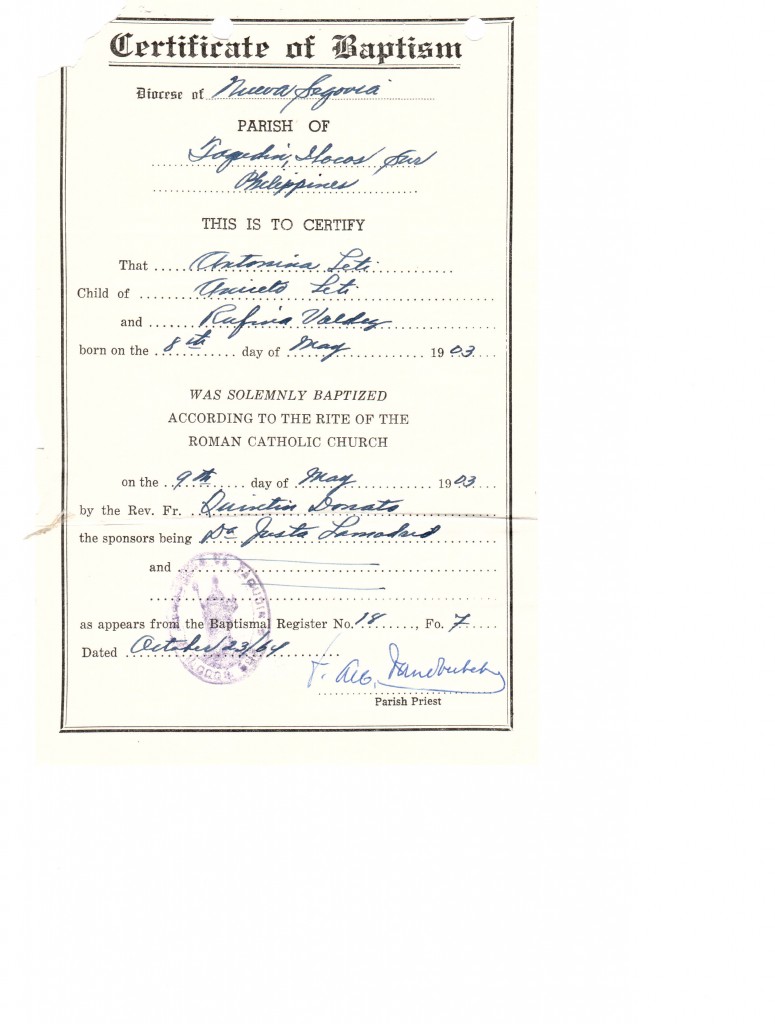 Certificate of Baptism
Diocese of Nueva Segovia
PARISH OF
Tagudin, Ilocos Sur
Philippines
THIS IS TO CERTIFY
That Antonina Leti
Child of Aniceto Leti
and Rufina Valdez
born on the 8th day of May 1903
WAS SOLEMNLY BAPTIZED
ACCORDING TO THE RITE OF THE
ROMAN CATHOLIC CHURCH
on the 9th day of May 1903
by the Rev. Fr. Quintin Donato
the sponsors being Da Justa Lamadrid
and
as appears from the Baptismal Register No. 18, Fo. 7
Dated October 23/64
Parish Priest